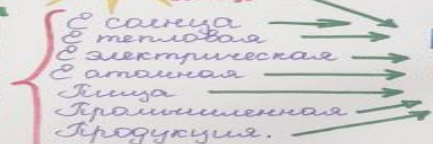 Е солнца
Е тепловая
Е электрическая
Е атомная
Пища
Промышленная
Продукция.